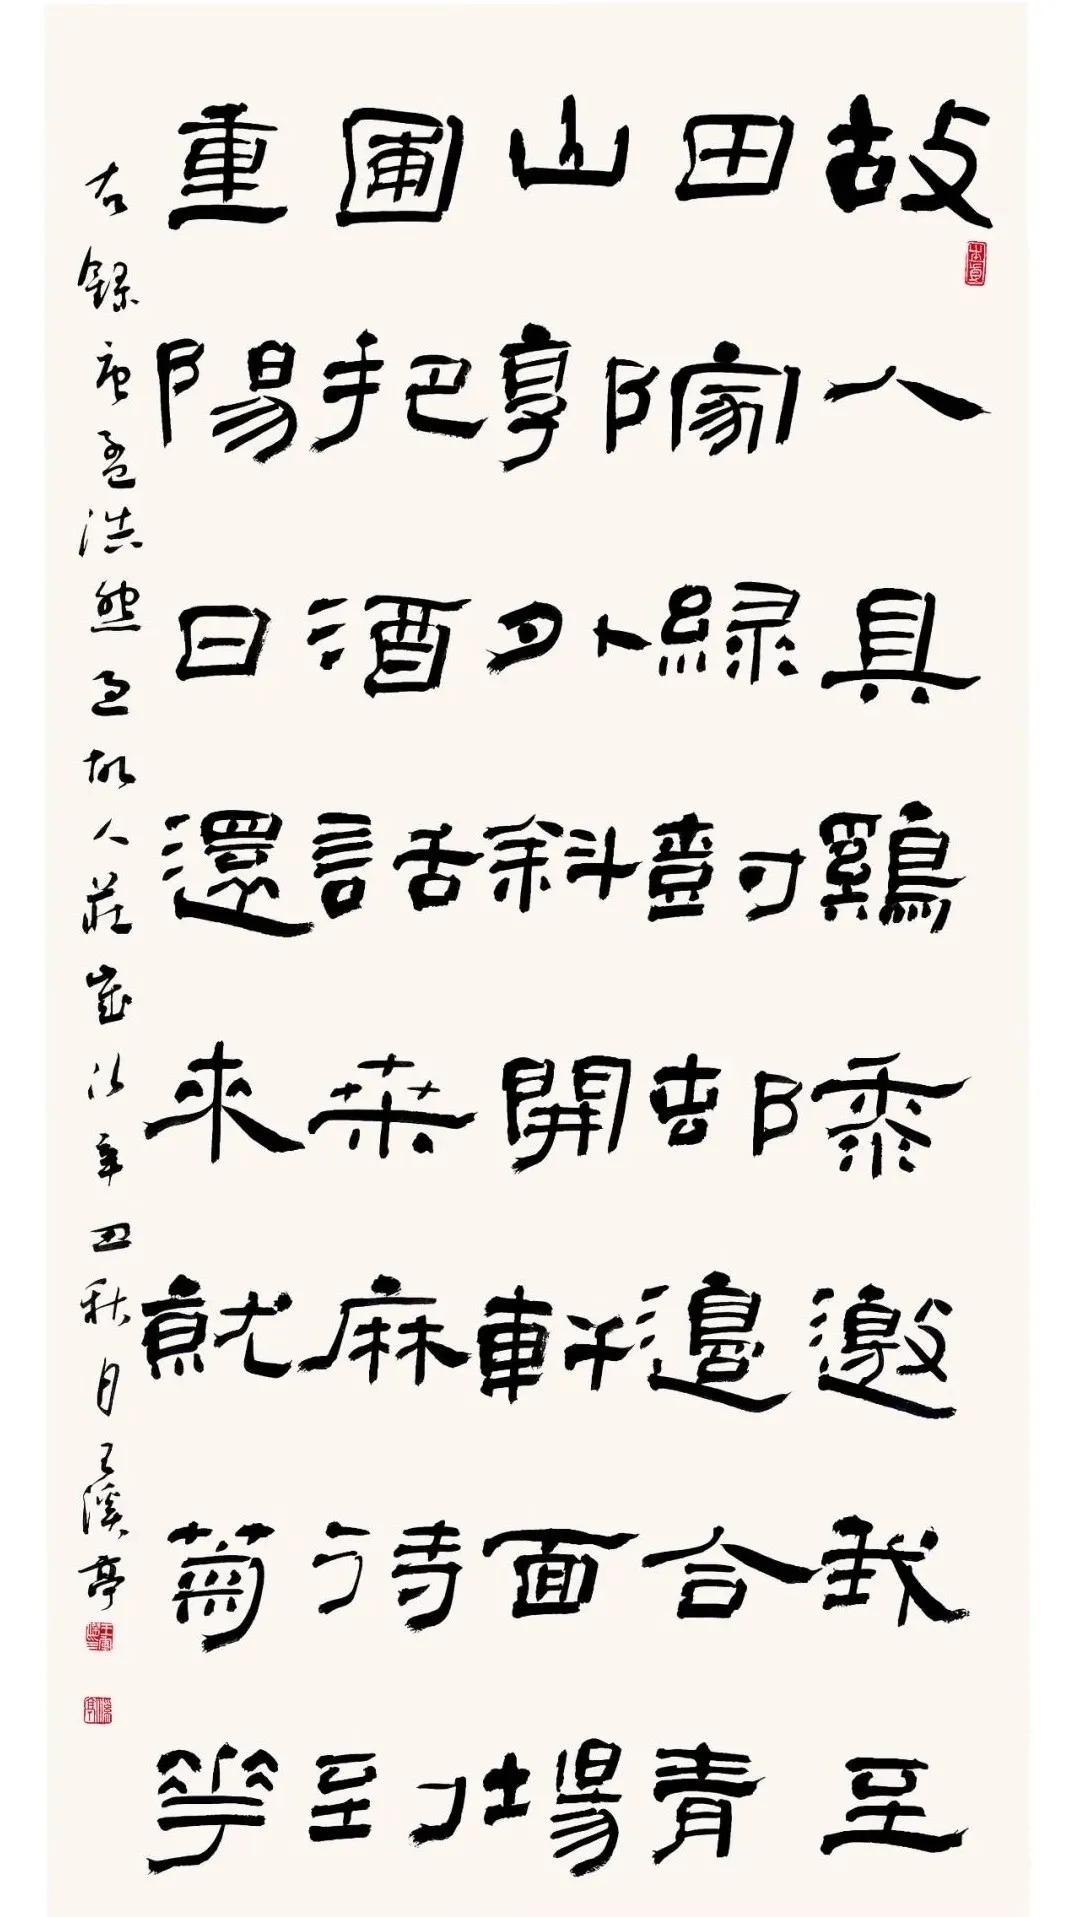 故人具鷄黍邀我至
田家緑樹邨邊合青
山郭外斜開軒面場
圃把酒話桒麻待到
重陽日還來就菊華
右錄唐孟浩然過故人莊歲次辛丑秋月王溪亭